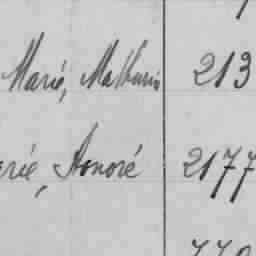 Marié, Mathurin 213
erie, Honoré 2177